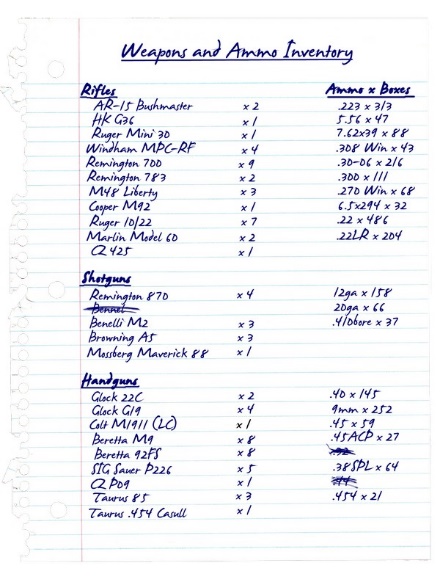 Weapons and Ammo Inventory
Rifles Ammo x Boxes
AR-15 Bushmaster x 2 .223 x 313
HK G36 x 1 5.56 x 47
Ruger Mini 30 x 1 7.62x39 x 88
Windham MPC-RF x 4 .308 Win x 43
Remington 700 x 9 .30-06 x 216
Remington 783 x 2 .300 x 111
M48 Liberty x 3 .270 Win x 68
Cooper M92 x 1 6.5x294 x 32
Ruger 10/22 x 7 .22 x 486
Marlin Model 60 x 2 .22LR x 204
CQ 425 x 1
Shotguns
Remington 870 x 4 12ga x 158
Bennel 20ga x 66
Benelli M2 x 3 .410bore x 37
Browning A5 x 3
Mossberg Maverick 88 x 1
Handguns
Glock 22C x 2 .40 x 145
Glock G19 x 4 9mm x 252
Colt M1911 (LC) x 1 .45 x 59
Beretta M9 x 8 .45ACP x 27
Beretta 92FS x 8
SIG Sauer P226 x 5 .38SPL x 64
CZ P09 x 1
Taurus 85 x 3 .454 x 21
Taurus .454 Casull x 1